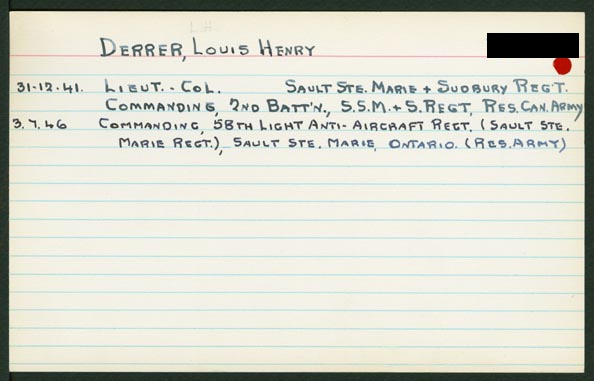 L.H.
DERRER, LOUIS HENRY
31-12-41. LIEUT.-COL. SAULT STE. MARIE + SUDBURY REGT.
COMMANDING, 2ND BATT'N., S.S.M. + S. REGT, RES. CAN. ARMY
3.7.46 COMMANDING, 58TH LIGHT ANTI-AIRCRAFT REGT. (SAULT STE.
MARIE REGT.), SAULT STE. MARIE, ONTARIO. (RES. ARMY)